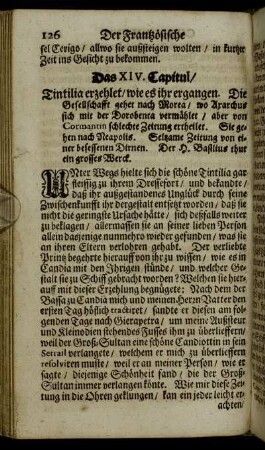 126 Der Frantzösische
sel Cerigo / allwo sie aussteigen wolten / in kurtzer
Zeit ins Gesicht zu bekommen.
Das XIV. Capitul /
Tintilia erzehlet / wie es ihr ergangen. Die
Gesellschafft gehet nach Morea / wo Axarchus
sich mit der Dorobenea vermählet / aber von
Cormantin schlechte Zeitung ertheilet. Sie ge-
hen nach Neapolis. Seltzame Zeitung von ei-
ner besessenen Dirnen. Der H. Basilius thut
ein grosses Werck.
UNter Wegs hielte sich die schöne Tintilia gar
fleissig zu ihrem Dressefort / und bekandte /
daß ihr außgestandenes Unglück durch seine
Zwischenkunfft ihr dergestalt entsetzt worden / daß sie
nicht die geringste Ursache hätte / sich deßfalls weiter
zu beklagen / allermassen sie an seiner lieben Person
allein dasjenige nunmehro wieder gefunden / was sie
an ihren Eltern verlohren gehabt. Der verliebte
Printz begehrte hierauff von ihr zu wissen / wie es in
Candia mit den Ihrigen stünde / und welcher Ge-
stalt sie zu Schiff gebracht worden? Welchen sie hier-
auff mit dieser Erzehlung begnügete: Nach dem der
Bassa zu Candia mich und meinen Herrn Vatter den
ersten Tag höflich tractiret / sandte er diesen am folgen-
den Tage nach Gierapetra / um meine Außsteur
und Kleinodien stehendes Fusses ihm zu überliefern /
weil der Groß-Sultan eine schöne Candiottin in sein
Serrail verlangete / welchem er mich zu überlieffern
resolviren muste / weil er an meiner Person / wie er
sagte / diejenige Schönheit fand / die der Groß-
Sultan immer verlangen könte. Wie mir diese Zei-
tung in die Ohren geklungen / kan ein jeder leicht er-
achten /